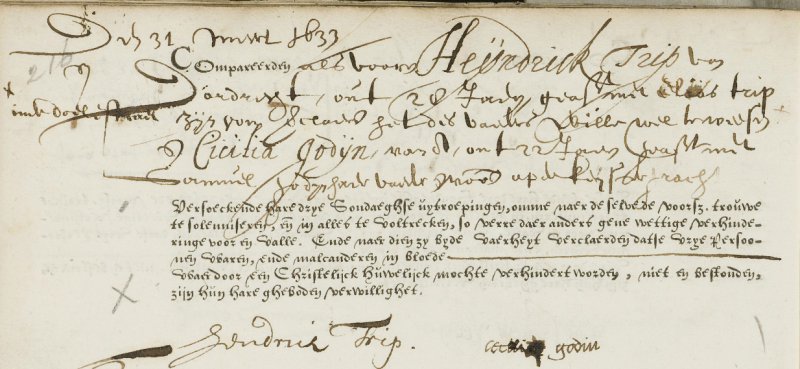 Den 31 meert 1633
216
Compareerden als vooren Heijndrick Trip van
x Dordrecht, out 28 Jaeren geass. met elias trip
in de doelestraet zijn oom verclaert het des vaeders wille wel te weesen
en Cicilia godijn, van A, out 22 Jaeren geasst. met
Samuel godijn haer vader woont op de keijsersgracht
Versoeckende hare drye Sondaeghse uytroepingen, omme naer de selve de voorsz. trouwe
te solenniseren, en in alles te voltrecken, so verre daer anders gene wettige verhinde-
ringe voor en valle. Ende naer dien zy byde vaerheyt verclaerden datse vrye Persoo-
nen waren, ende malcanderen in bloede
waer door een Christelijck Huwelijck mochte verhindert worden, niet en bestonden,
zijn hun hare gheboden verwillighet.
X
Hendrick Trip. cecilia godin